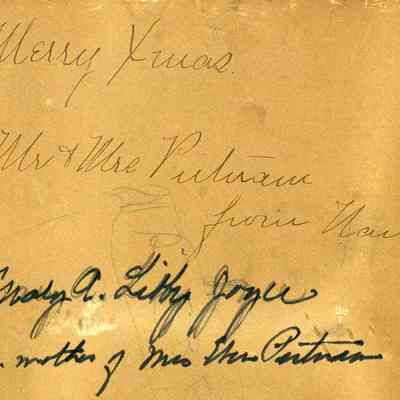 Merry Xmas.
Mr & Mrs Putnam
from
A. Libby Joyce
mother of Mrs Putnam